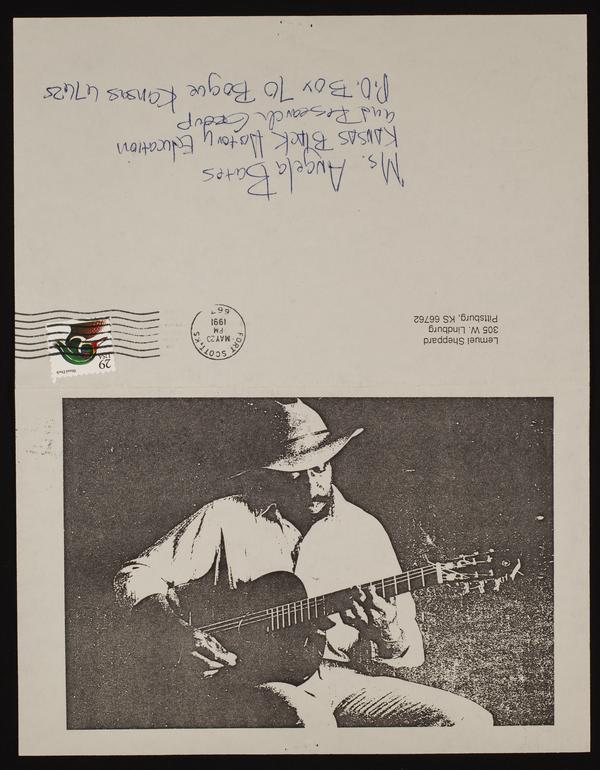 Lemuel Sheppard
305 W. Lindburg
Pittsburg, KS 66762
FORT SCOTT, KS
MAY 23
PM
1991
667
29
USA
Wood Duck
Ms. Angela Bates
Kansas Black History Education
and Research Group
P.O. Box 70 Bogue Kansas 67625